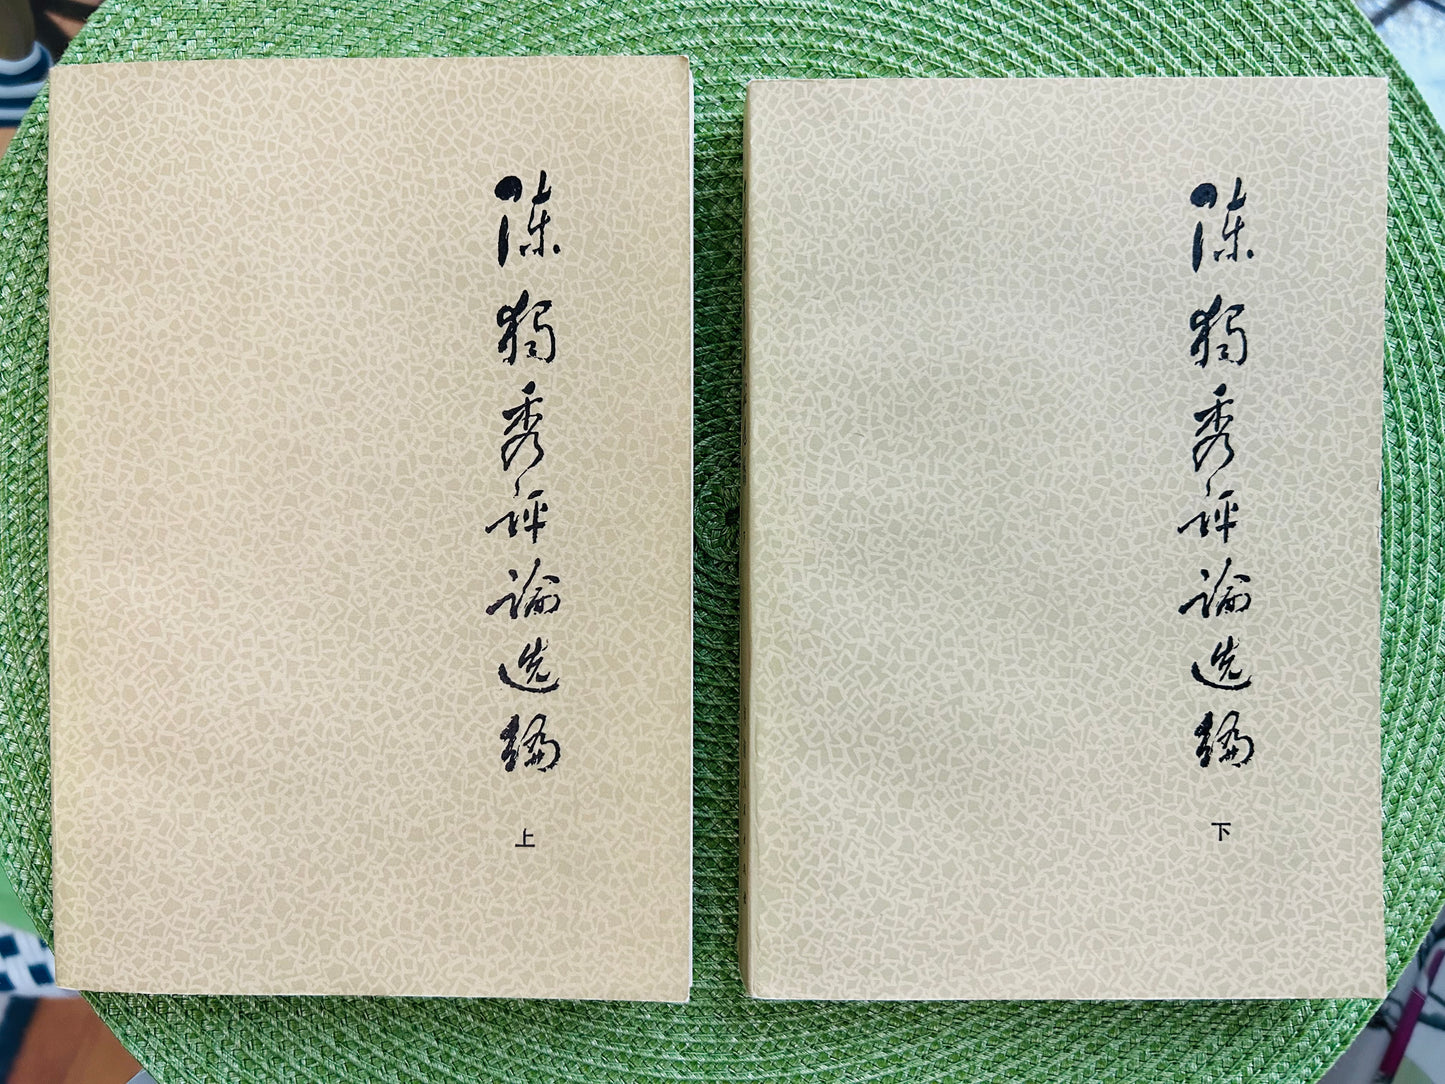 陈獨秀评论选编
上
陈獨秀评论选编
下